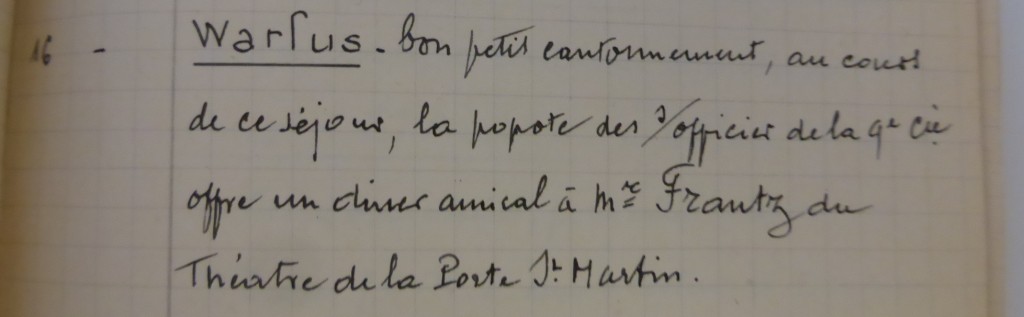 16 - Warlus - bon petit cantonnement, au cours
de ce séjour, la popote des s/officier de la 9e Cie
offre un diner amical à Mr Frantz du
Théatre de la Porte St Martin.